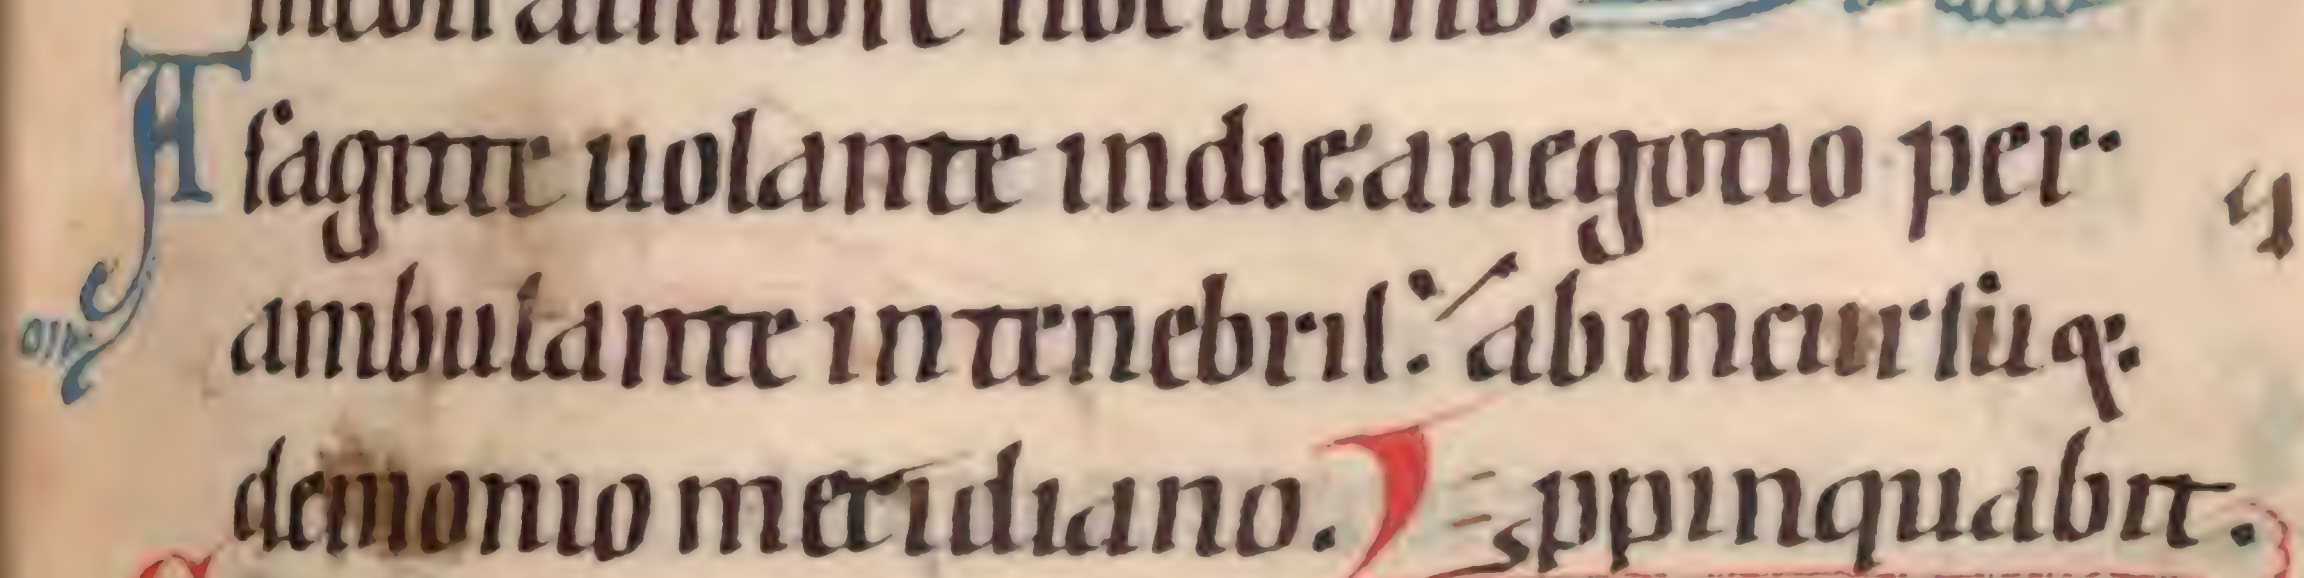 timore nocturno.
A sagitte uolante indie anegotio per
ambulante intenebris: abincursu &
demonio meridiano. ppinquabit.